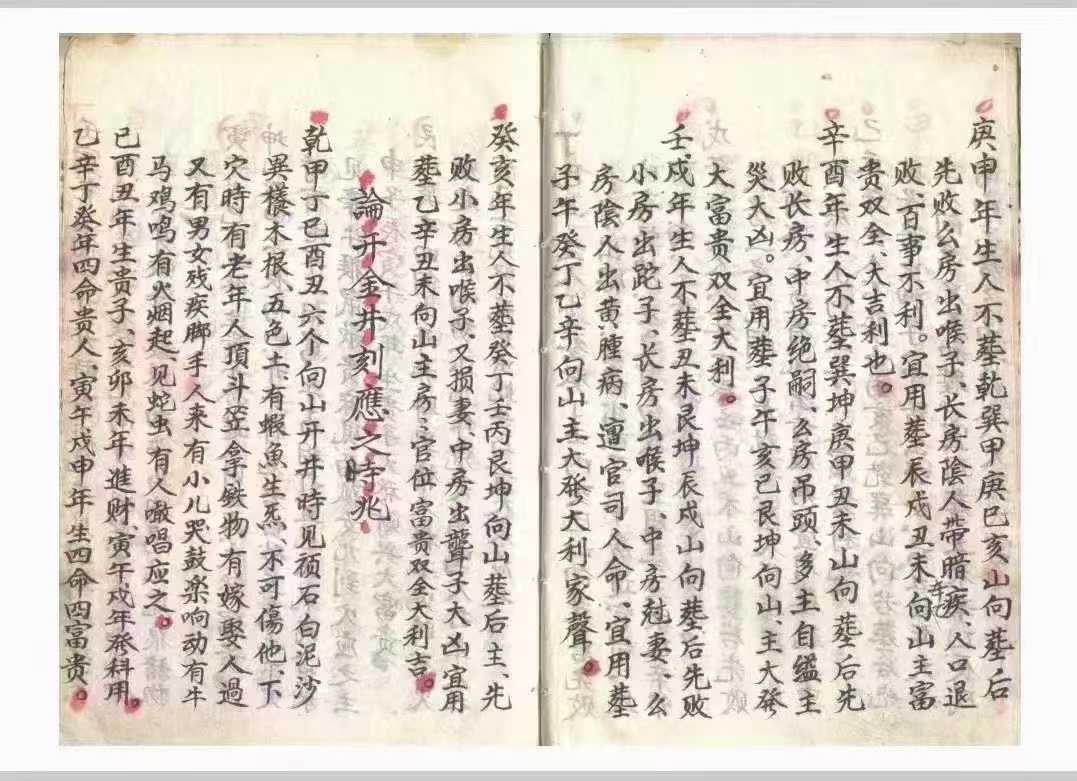 庚申年生人不葬乾巽甲庚巳亥山向葬后
先败么房出喉子、长房陰人带暗疾、人口退
败、百事不利。宜用葬辰戌丑未向山主富
贵双全、大吉利也。
辛酉年生人不葬巽坤庚甲丑未山向葬后先
败长房、中房绝嗣、么房吊頸、多主自缢主
災大凶。宜用葬子午亥巳艮坤向山、主大發
大富贵双全大利。
壬戌年生人不葬丑未艮坤辰戌山向葬、后先败
小房出跎子、长房出喉子、中房尅妻、么
房陰人出黄腫病、遭官司人命、宜用葬
子午癸丁乙辛向山主大發大利家聲。
癸亥年生人不葬癸丁壬丙艮坤向山葬后主、先
败小房出喉子、又损妻、中房出聾子大凶宜用
葬乙辛丑未向山主房房官位富贵双全大利吉。
論开金井刻應之時兆
乾甲丁巳酉丑六个向山开井時见顽石白泥沙
異樣木根、五色土、有蝦魚生炁、不可傷他、下
穴時有老年人頂斗笠拿鉄物有嫁娶人過
又有男女残疾脚手人来有小儿哭鼓楽响动有牛
马鸡鸣有火烟起见蛇虫有人嗷唱应之。
巳酉丑年生贵子、亥卯未年進财、寅午戌年發科用。
乙辛丁癸年四命贵人、寅午戌申年生四命四富贵。